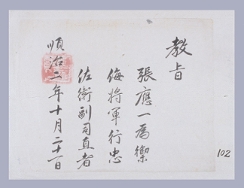 教旨
張應一為禦
侮將軍行忠
佐衛副司直者
順治二年十月二十一日
102